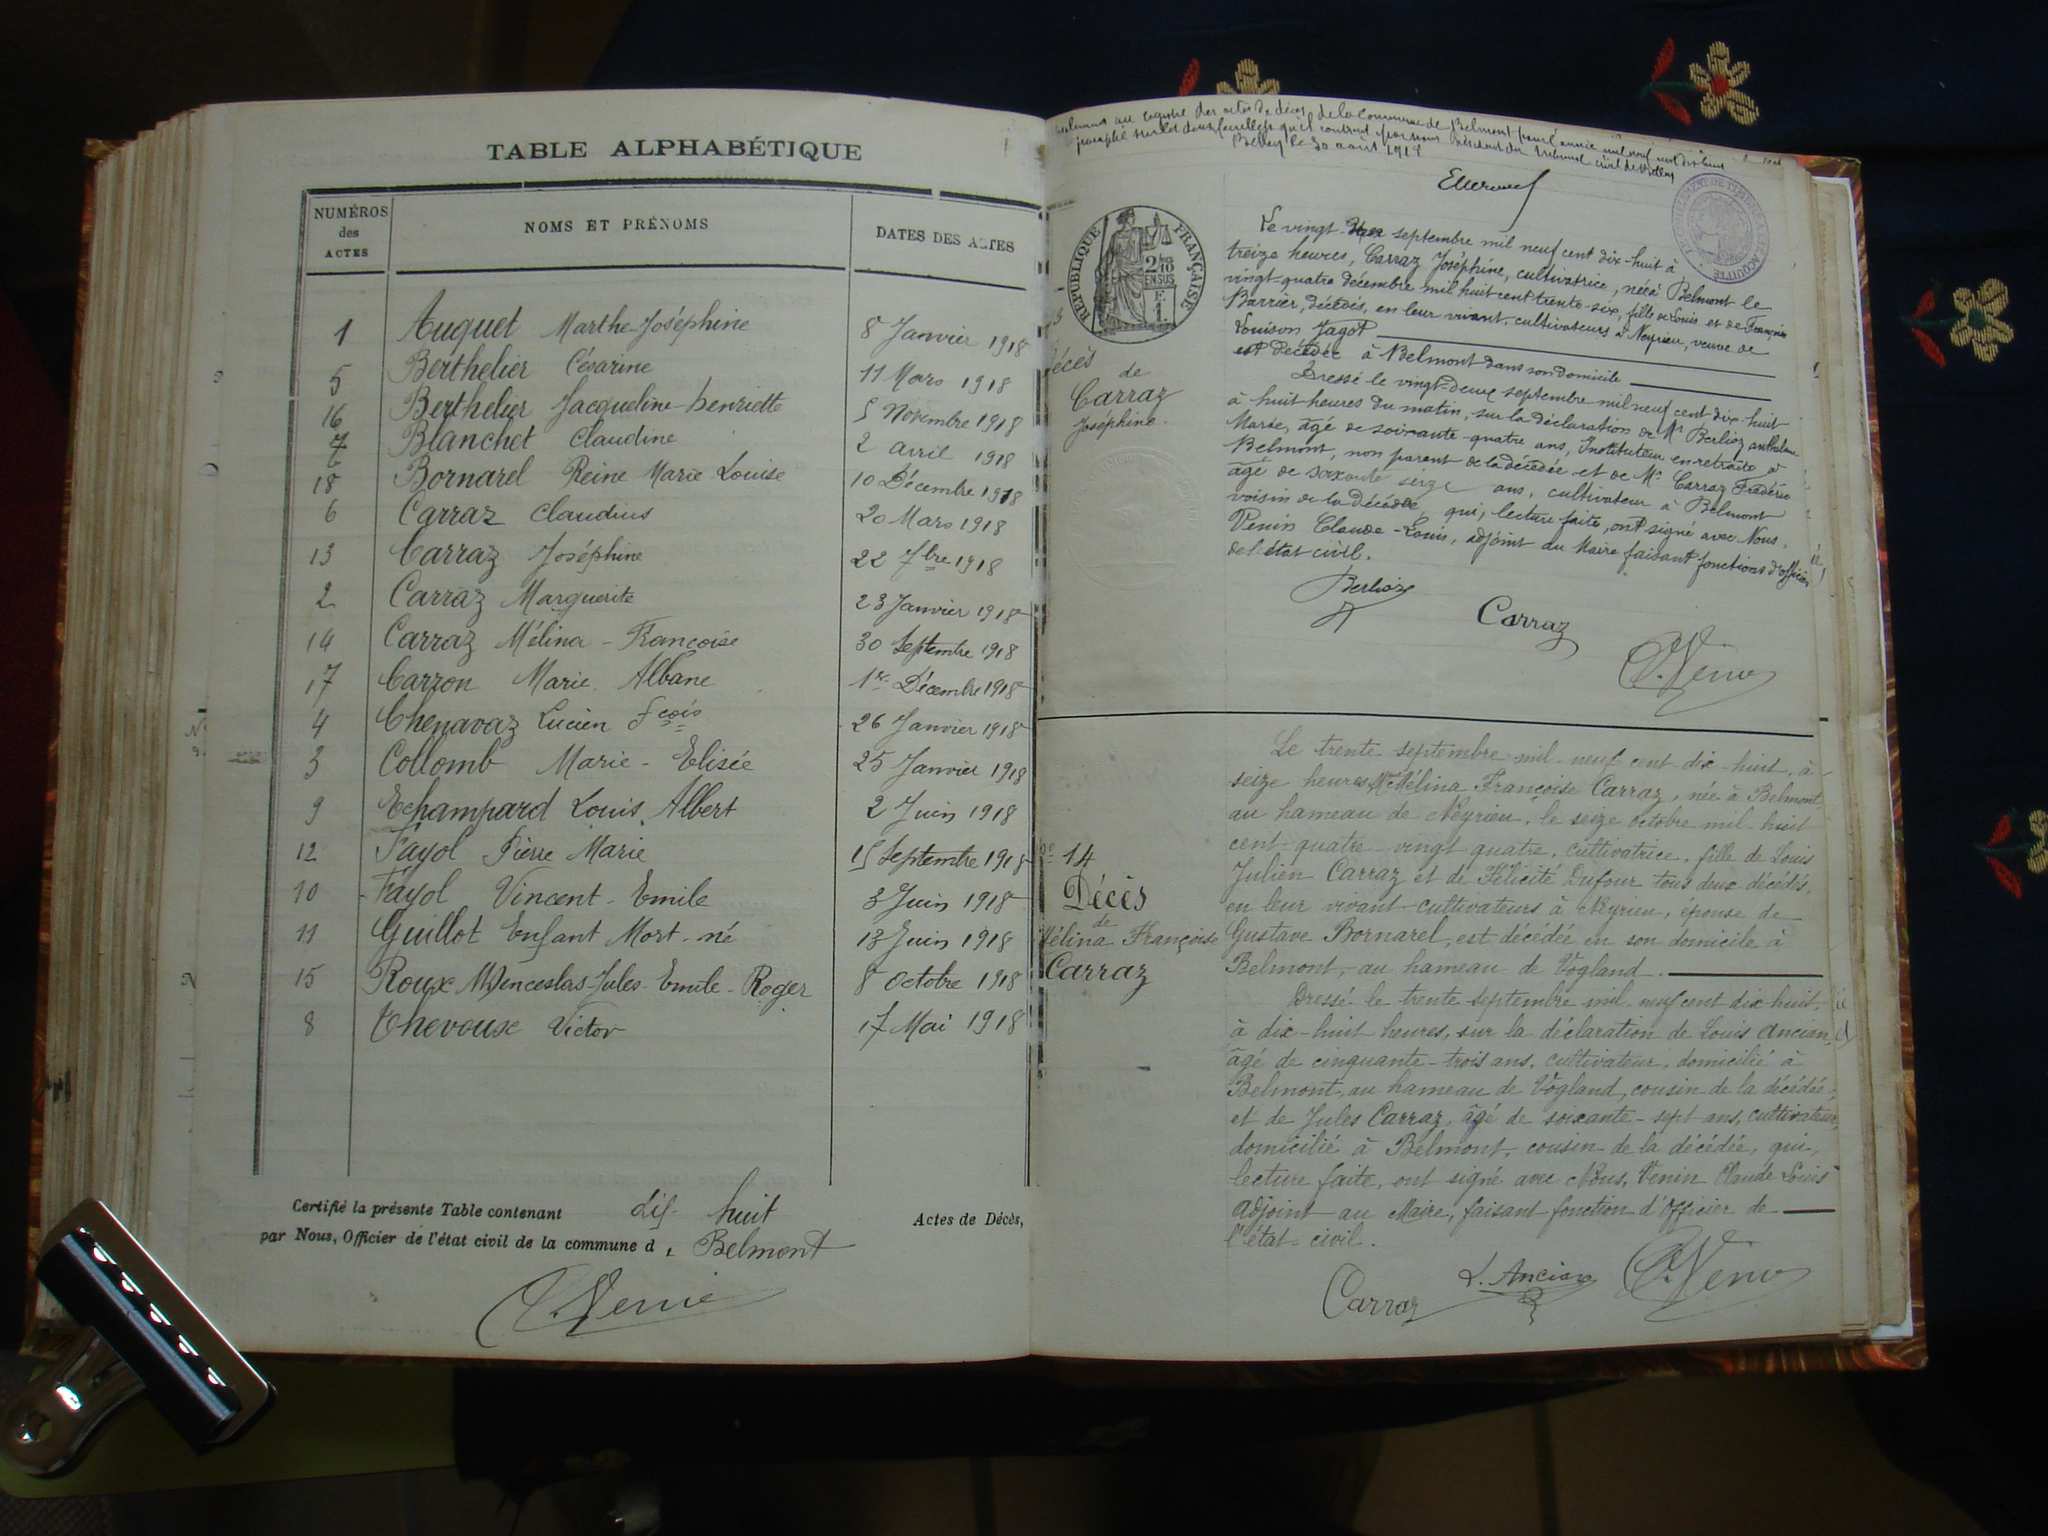 TABLE ALPHABÉTIQUE
NUMÉROS des ACTES
NOMS ET PRÉNOMS
DATES DES ACTES
1 Auguet Marthe-Joséphine 8 Janvier 1918
5 Berthelier Césarine 11 Mars 1918
16 Berthelier Jacqueline-henriette 5 Novembre 1918
7 Blanchet Claudine 2 avril 1918
18 Bornarel Reine Marie Louise 10 Décembre 1918
6 Carraz Claudius 20 Mars 1918
13 Carraz Joséphine 22 7bre 1918
2 Carraz Marguerite 23 Janvier 1918
14 Carraz Mélina-Françoise 30 Septembre 1918
17 Carron Marie Albane 1er Décembre 1918
4 Chenavaz Lucien fçois 26 Janvier 1918
3 Collomb Marie-Elisée 25 Janvier 1918
9 Echampard Louis Albert 2 Juin 1918
12 Fayol Pierre Marie 15 Septembre 1918
10 Fayol Vincent-Emile 3 Juin 1918
11 Guillot Enfant Mort-né 13 Juin 1918
15 Roux Wenceslas-Jules-Emile-Roger 8 Octobre 1918
8 Thevoux Victor 17 Mai 1918
Certifié la présente Table contenant dix huit Actes de Décès,
par Nous, Officier de l'état civil de la commune d Belmont
C. Venin
au registre des actes de décès de la Commune de Belmont pour l'année mil neuf cent dix huit
paraphé sur les deux feuillets qu'il contient par nous Président du Tribunal civil de Belley
Belley le 30 août 1918
RÉPUBLIQUE FRANÇAISE
2/10 EN SUS
1 F.
Décès
de
Carraz
Joséphine.
Le vingt septembre mil neuf cent dix-huit à
treize heures, Carraz Joséphine, cultivatrice, née à Belmont le
vingt-quatre décembre mil huit cent trente-six, fille de Louis et de Françoise
Barrier, décédés, en leur vivant, cultivateurs à Neyrieu, veuve de
Louison Jagot
est décédée à Belmont dans son domicile
Dressé le vingt-deux septembre mil neuf cent dix-huit
à huit heures du matin, sur la déclaration de Mr Berlioz anthelme
Marie, âgé de soixante-quatre ans, Instituteur en retraite à
Belmont, non parent de la décédée et de Mr Carraz Frédéric
âgé de soixante seize ans, cultivateur à Belmont
voisin de la décédée, qui, lecture faite, ont signé avec Nous,
Venin Claude-Louis, adjoint du Maire faisant fonctions d'officier
de l'état civil.
Berlioz
Carraz
C. Venin
No 14
Décès
de
Mélina Françoise
Carraz
Le trente septembre mil neuf cent dix-huit, à
seize heures Mme Mélina Françoise Carraz, née à Belmont
au hameau de Neyrieu, le seize octobre mil huit
cent-quatre-vingt quatre, cultivatrice, fille de Louis
Julien Carraz et de Félicité Dufour tous deux décédés,
en leur vivant cultivateurs à Neyrieu, épouse de
Gustave Bornarel, est décédée en son domicile à
Belmont, au hameau de Vogland.
Dressé le trente septembre mil neuf cent dix huit
à dix-huit heures, sur la déclaration de Louis Ancian,
âgé de cinquante-trois ans, cultivateur, domicilié à
Belmont, au hameau de Vogland, cousin de la décédée,
et de Jules Carraz, âgé de soixante-sept ans, cultivateur,
domicilié à Belmont, cousin de la décédée, qui,
lecture faite, ont signé avec Nous, Venin Claude Louis
adjoint au Maire, faisant fonction d'Officier de
l'état-civil.
Carraz
L. Ancian
C. Venin